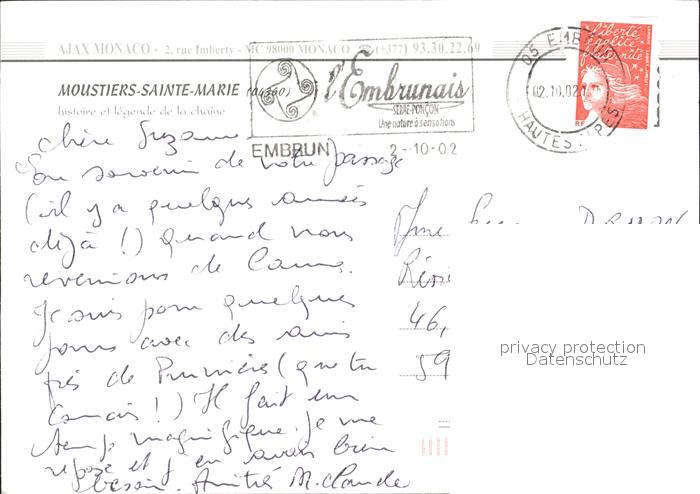 AJAX MONACO - 2, rue Imberty - MC 98000 MONACO ☎ (+377) 93.30.22.69
MOUSTIERS-SAINTE-MARIE (04360)
histoire et légende de la chaîne
l'Embrunais
SERRE-PONÇON
Une nature à sensations
EMBRUN 2-10-02
05 EMBRUN
02.10.02
HAUTES ALPES
Liberté
égalité
fraternité
RF
Chère Suzanne
En souvenir de votre passage
(il y a quelques années
déjà !) quand nous
revenions de Cannes.
Je suis pour quelques
jours avec des amis
près de Prunières (que tu
connais !) Il fait un
temps magnifique. je me
repose et j'en avais bien
besoin. Amitiés M. Claude
Mme
Rési
46,
59
privacy protection
Datenschutz